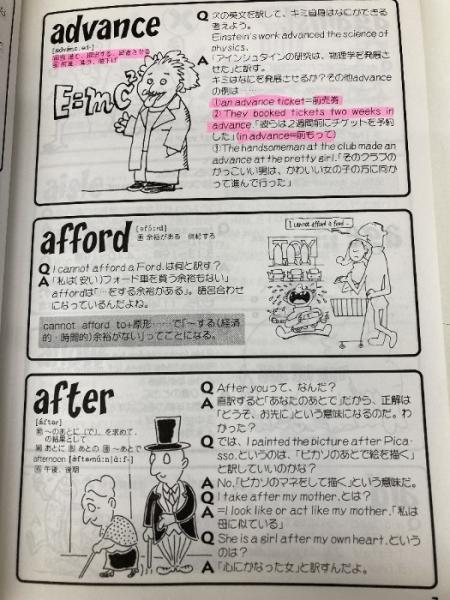 advance
[ədvǽns]
E=mC²
Q 次の英文を訳して、キミ自身はなにができる
考えよう。
Einstein's work advanced the science of
physics.
A 「アインシュタインの研究は、物理学を発展さ
せた」と訳す。
キミはなにを発展させるか?その他advance
の例は……
① an advance ticket=前売券
② They booked tickets two weeks in
advance.「彼らは2週間前にチケットを予約
した」(in advance=前もって)
③ The handsomeman at the club made an
advance at the pretty girl.「そのクラブの
かっこいい男は、かわいい女の子の方に向か
って進んで行った」
afford
[əfɔ́ːrd]
動 余裕がある 供給する
I cannot afford a Ford...
TOY
Q I cannot afford a Ford.は何と訳す?
A 「私は(安い)フォード車を買う余裕もない」
affordは「…をする余裕がある」。語呂合わせ
になっているんだよね。
cannot afford to+原形……で「〜する(経済
的・時間的)余裕がない」ってことになる。
after
[ǽftər]
前 〜のあとに(で)、を求めて、
の結果として
副 あとに 形 あとの 接 〜あとで
afternoon
名 午後、後期
Q After youって、なんだ?
A 直訳すると「あなたのあとで」だから、正解は
「どうぞ、お先に」という意味になるのだ。わ
かった?
Q では、I painted the picture after Pica-
sso.というのは、「ピカソのあとで絵を描く」
と訳していいのかな?
A No.「ピカソのマネをして描く」という意味だ。
Q I take after my mother.とは?
A =I look like or act like my mother.「私は
母に似ている」
Q She is a girl after my own heart.という
のは?
A 「心にかなった女」と訳すんだよ。